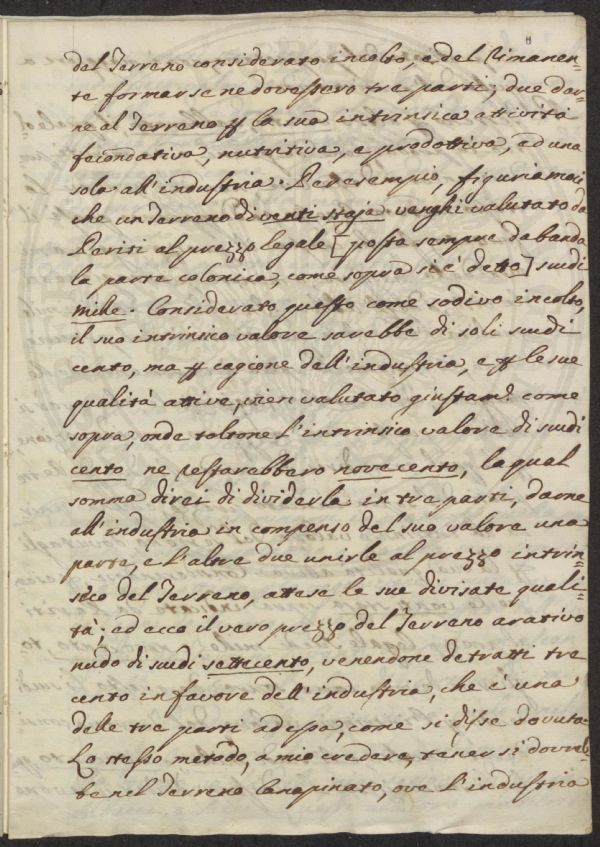 del Terreno considerato incolto, e del Rimanen=
te formar se ne dovessero tre parti; due dar=
ne al Terreno p la sua intrinsica attività
fecondativa, nutritiva, e prodottiva, ed una
sola all'industria. Per esempio, figuriamoci
che un Terreno di venti staja venghi valutato da
Periti al prezzo legale [posta sempre da banda
la parte colonica, come sopra si è detto] scudi
mille. Considerato questo come sodivo incolto,
il suo intrinsico valore sarebbe di soli scudi
cento, ma p cagione dell'industria, e p le sue
qualità attive, vien valutato giustam.e come
sopra, onde toltone l'intrinsico valore di scudi
cento ne restarebbero novecento, la qual
somma direi di dividerla in tre parti, darne
all'industria in compenso del suo valore una
parte, e l'altre due unirle al prezzo intrin=
sico del Terreno, attese le sue divisate quali=
tà; ed ecco il vero prezzo del Terreno arativo
nudo di scudi settecento, venendone detratti tre
cento in favore dell'industria, che è una
delle tre parti ad essa, come si disse dovuta.
Lo stesso metodo, a mio credere, tener si dovreb=
be nel Terreno Canapinato, ove l'industria